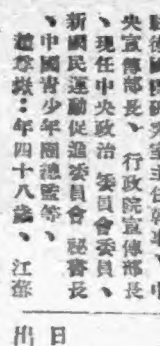 室主任 中
央宣傳部長、行政院宣傳部長
、現任中央政治委員會委員、
新國民運動促進委員會祕書長
、中國青少年團總監等、
趙尊嶽：年四十八歲、江蘇
日
出